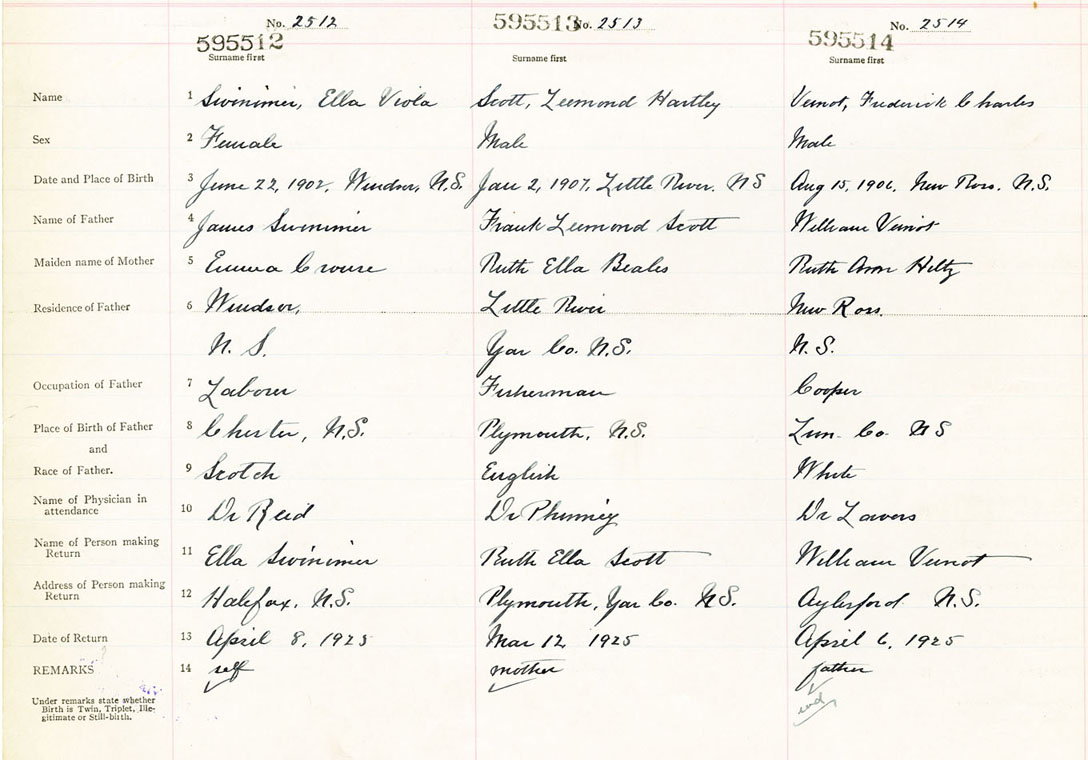 No. 2512
595512
Surname first
595513 No. 2513
Surname first
No. 2514
595514
Surname first
Name 1 Swinimer, Ella Viola Scott, Leemond Hartley Veinot, Frederick Charles
Sex 2 Female Male Male
Date and Place of Birth 3 June 22, 1902, Windsor, N.S. Jan 2, 1907, Little River. NS Aug 15, 1906, New Ross. N.S.
Name of Father 4 James Swinimer Frank Leemond Scott William Veinot
Maiden name of Mother 5 Emma Crouse Ruth Ella Beales Ruth Ann Hiltz
Residence of Father 6 Windsor, Little River New Ross.
N. S. Yar Co. N.S. N. S.
Occupation of Father 7 Laborer Fisherman Cooper
Place of Birth of Father 8 Chester, N.S. Plymouth, N.S. Lun. Co. NS
and
Race of Father. 9 Scotch English White
Name of Physician in
attendance 10 Dr Reid Dr Phinney Dr Lavers
Name of Person making
Return 11 Ella Swinimer Ruth Ella Scott William Veinot
Address of Person making
Return 12 Halifax, N.S. Plymouth, Yar Co. N.S. Aylesford N.S.
Date of Return 13 April 8, 1925 Mar 12, 1925 April 6, 1925
REMARKS 14 self mother father
Under remarks state whether
Birth is Twin, Triplet, Ille-
gitimate or Still-birth.